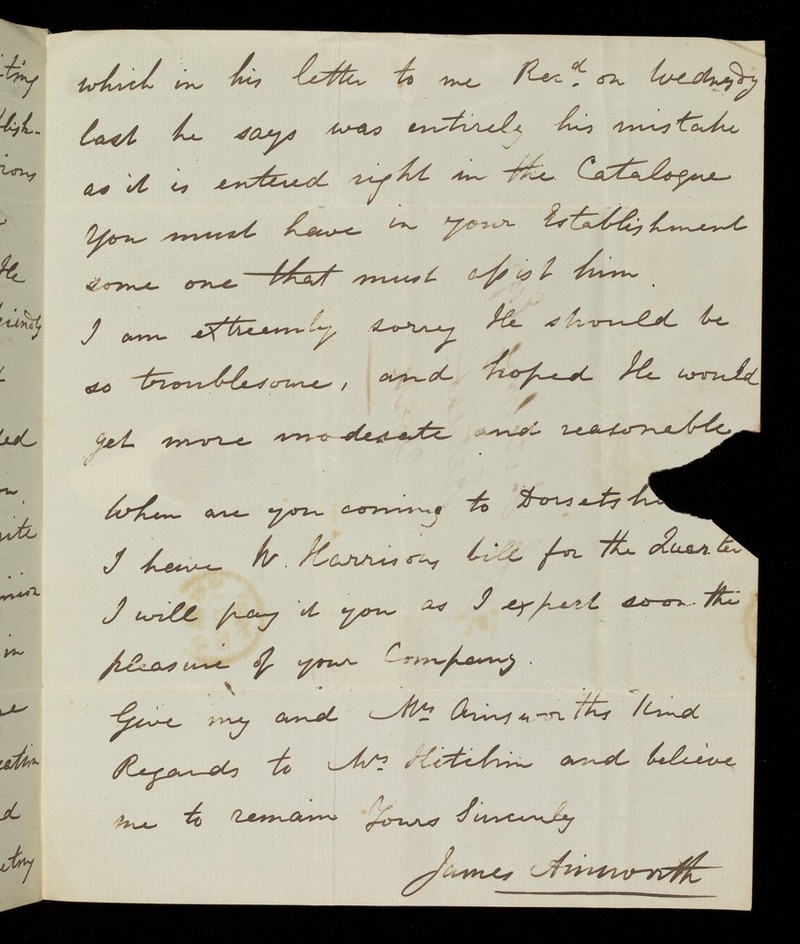 which in his letter to me Recd. on Wednesdy
last he says was entirely his mistake
as it is entered right in the Catalogue
You must have in your Establishment
some one that must assist him.
I am extreemly sorry He should be
so troublesome, and hoped He would
get more moderate and reasonable
When are you coming to Dorsetshi
I have W. Harrisons bill for the Quarter
I will pay it you as I expect soon the
pleasure of your Company.
Give my and Mrs Ainsworths Kind
Regards to Mrs Hitchin and believe
me to remain Yours Sincerely
James Ainsworth